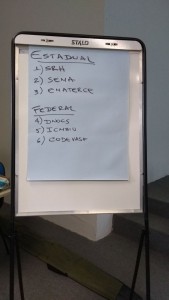 STALO
ESTADUAL
1) SRH
2) SEMA
3) EMATERCE
FEDERAL
4) DNOCS
5) ICMBIO
6) CODEVASF